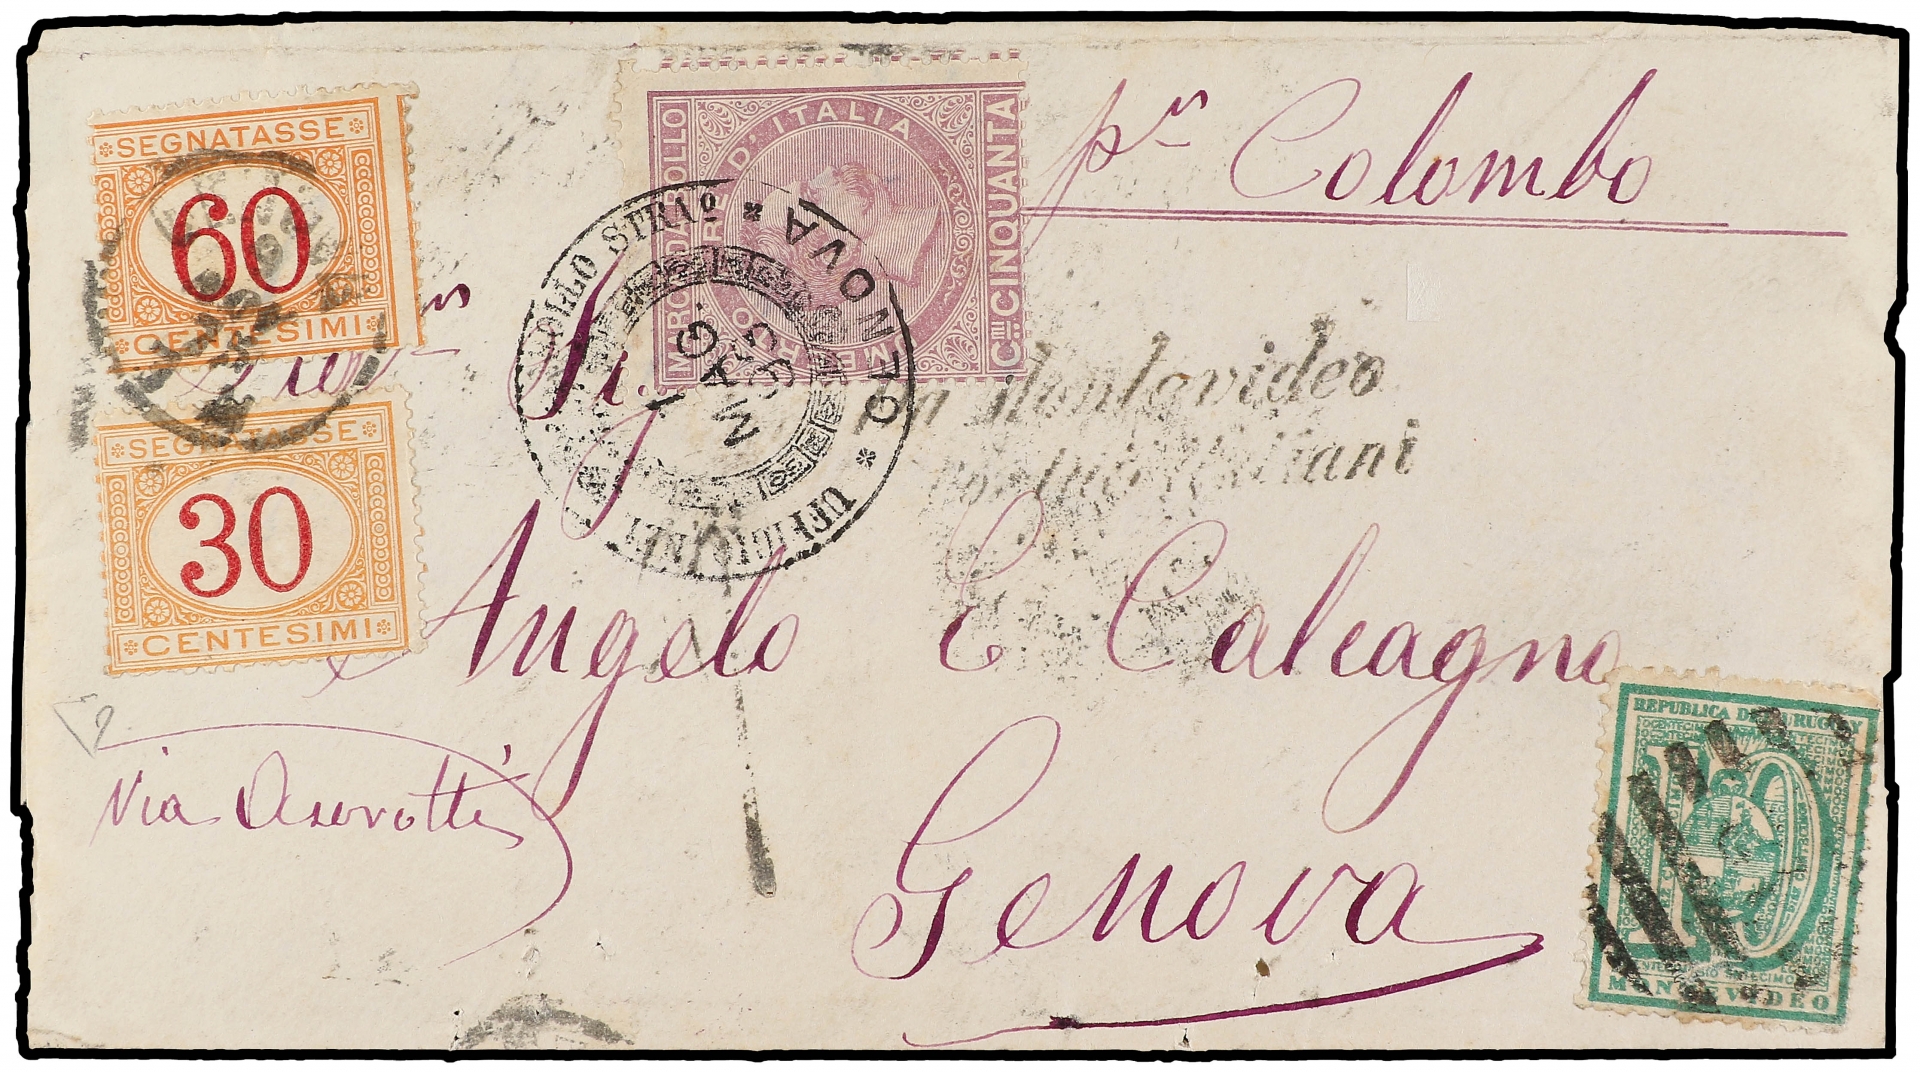 SEGNATASSE
60
CENTESIMI
SEGNATASSE
30
CENTESIMI
MARCA DA BOLLO
REGNO D'ITALIA
C.mi CINQUANTA
UFFICIO BOLLO STRAº
GENOVA
MAG.
pr Colombo
Da Montevideo
Italiani
Sig
Angelo E Calcagno
Genova
Via Assarotti
REPUBLICA DEL URUGUAY
10
MONTEVIDEO